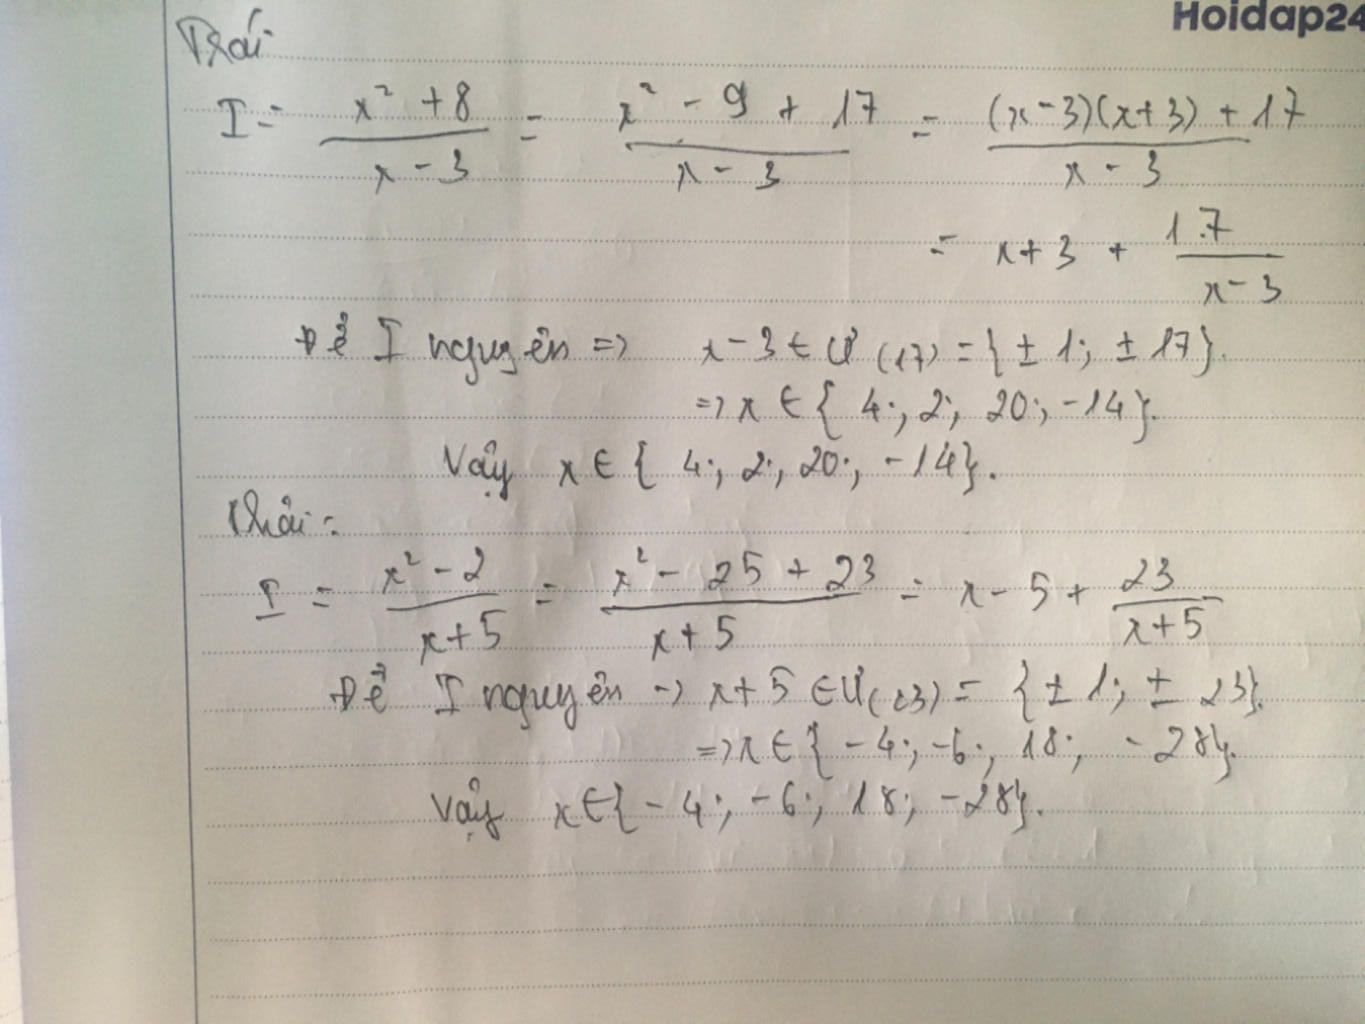 Hoidap24
Trái
I = (x² + 8)/(x - 3) = (x² - 9 + 17)/(x - 3) = ((x-3)(x+3) + 17)/(x - 3)
= x+3 + 17/(x-3)
Để I nguyên => x-3 ∈ Ư(17) = {± 1; ± 17}.
=> x ∈ { 4; 2; 20; -14}.
Vậy x ∈ { 4; 2; 20; -14}.
Phải:
I = (x² - 2)/(x+5) = (x² - 25 + 23)/(x+5) = x - 5 + 23/(x+5)
Để I nguyên -> x+5 ∈ Ư(23) = {± 1; ± 23}.
=> x ∈ { -4; -6; 18; -28}.
Vậy x ∈ { -4; -6; 18; -28}.